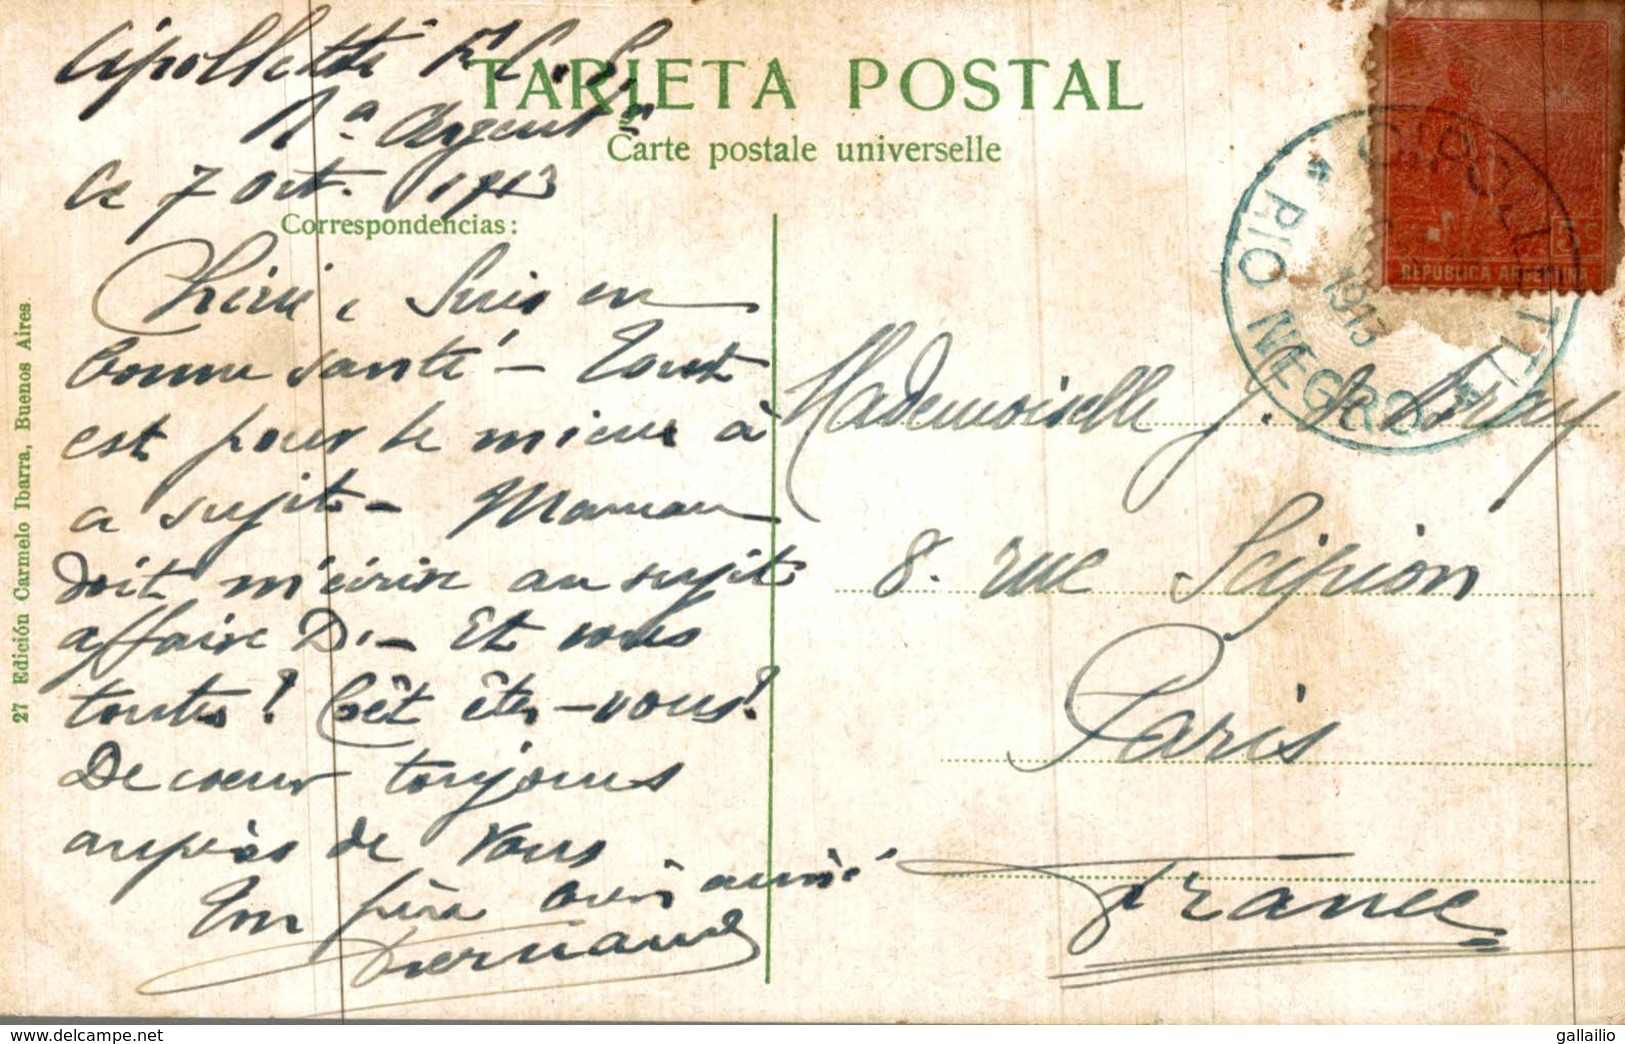 Cipolletti F. C. S.
Rª Argentª
Ce 7 Oct. 1913
TARJETA POSTAL
Carte postale universelle
Correspondencias:
Chérie, Suis en
bonne santé - Tout
est pour le mieux à
a sujet - Maman
doit m'écrire au sujet
affaire D. - Et vous
toutes? Cet êtes-vous?
De coeur toujours
auprès de vous
Ton frère bien aimé
Fernand
Mademoiselle J. de Bray
8. rue Scipion
Paris
France
5c
REPUBLICA ARGENTINA
CIPOLLETTI
1913
* RIO NEGRO *
27 Edición Carmelo Ibarra, Buenos Aires.
delcampe.net
gallailio